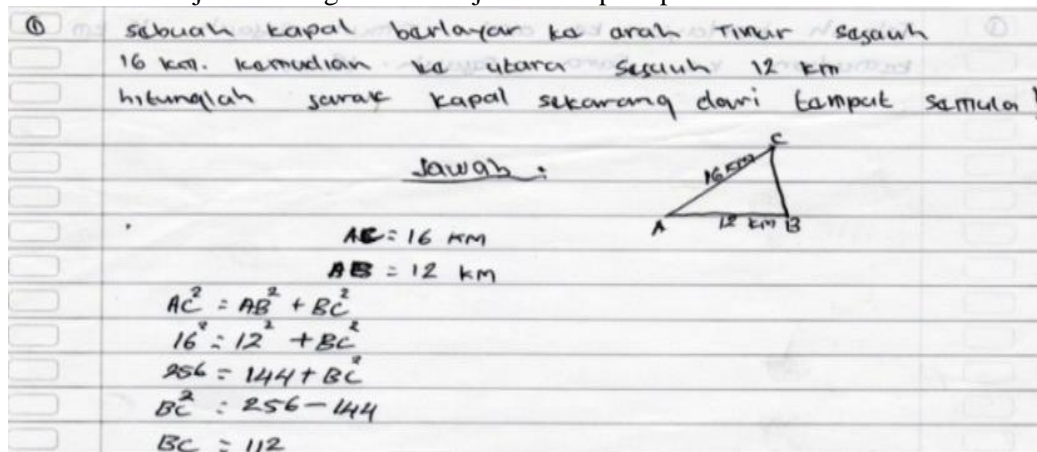 ①
sebuah kapal berlayar ke arah Timur sejauh
16 km. kemudian ke utara sejauh 12 km
hitunglah jarak kapal sekarang dari tempat semula!
Jawab :
C
16 km
A 12 km B
AC = 16 km
AB = 12 km
AC² = AB² + BC²
16² = 12² + BC²
256 = 144 + BC²
BC² = 256 - 144
BC = 112